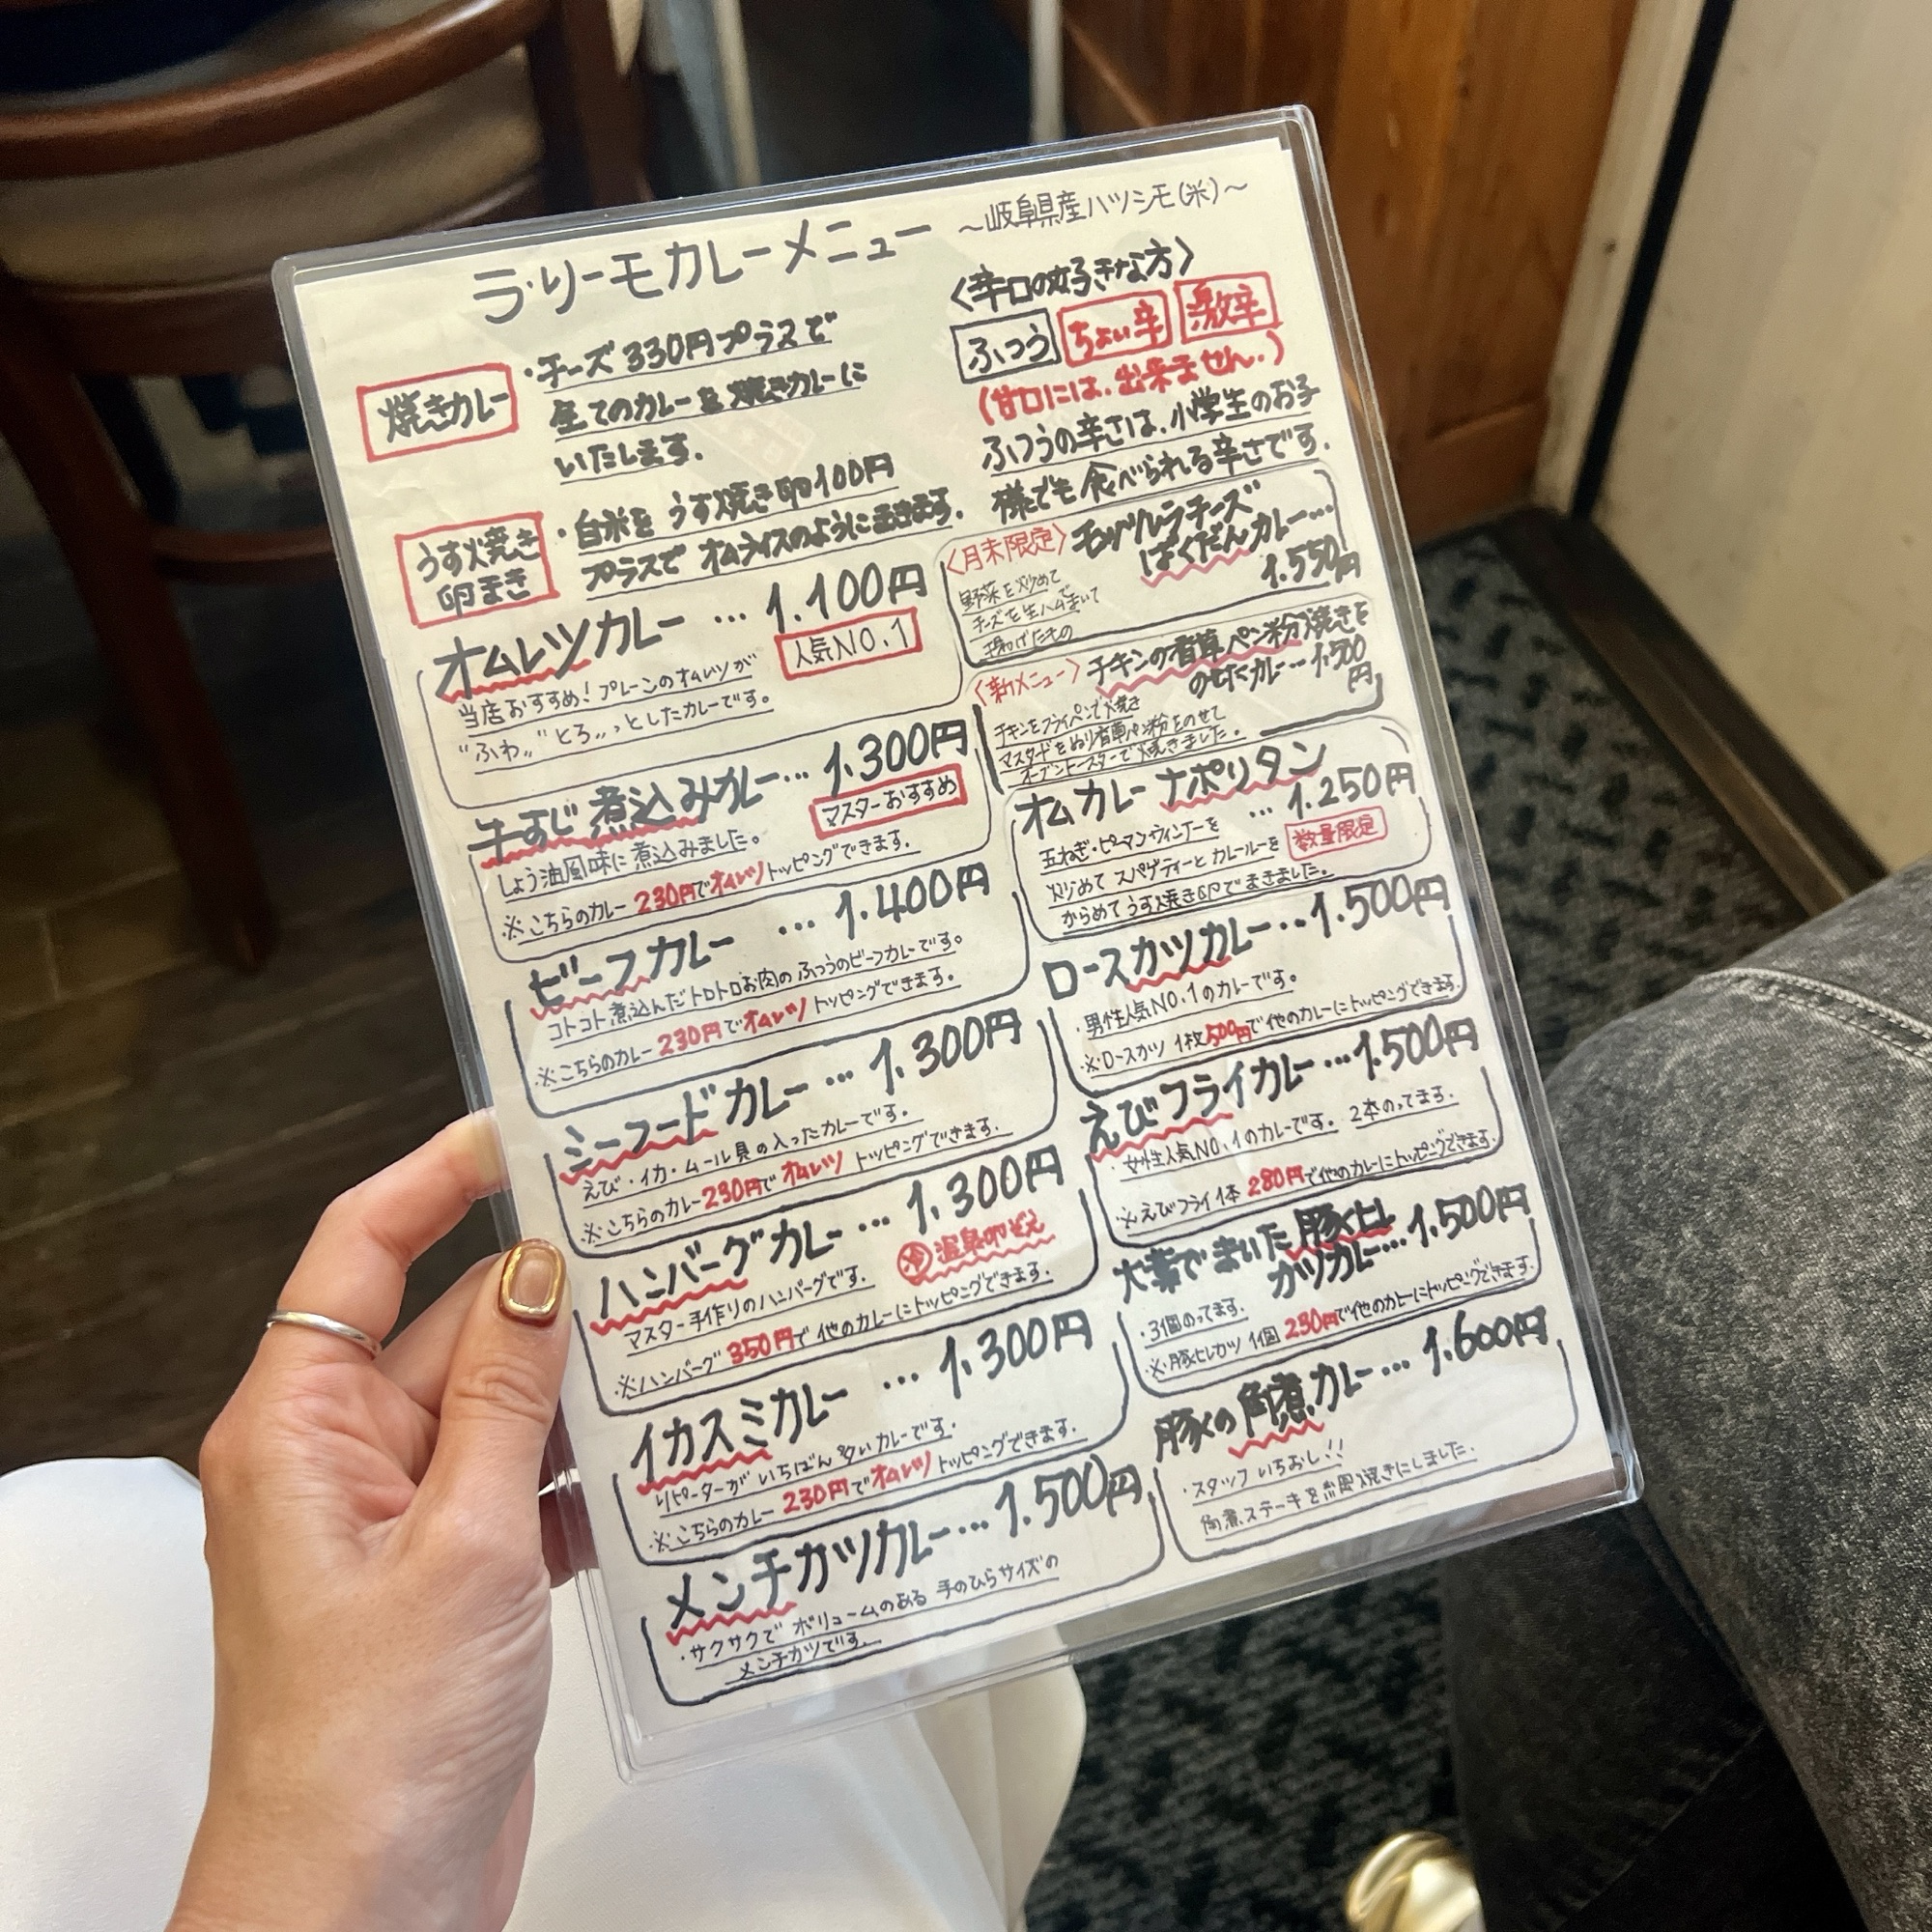 ラ・リーモカレーメニュー ～岐阜県産ハツシモ(米)～
焼きカレー
・チーズ 330円プラスで
全てのカレーを焼きカレーに
いたします。
うす焼き
卵まき
・白米を うす焼き卵100円
プラスで オムライスのようにまきます。
オムレツカレー … 1.100円
人気NO.1
当店おすすめ! プレーンのオムレツが
"ふわ〃" とろ〃っとしたカレーです。
牛すじ 煮込みカレー… 1.300円
マスターおすすめ
しょう油風味に煮込みました。
※こちらのカレー 230円でオムレツトッピングできます。
ビーフカレー … 1.400円
コトコト煮込んだトロトロお肉の ふつうのビーフカレーです。
※こちらのカレー 230円でオムレツ トッピングできます。
シーフードカレー … 1.300円
えび・イカ・ムール貝の入ったカレーです。
※こちらのカレー230円で オムレツ トッピングできます。
ハンバーグカレー … 1.300円
温泉卵ぞえ
マスター手作りのハンバーグです。
※ハンバーグ 350円で 他のカレーにトッピングできます。
イカスミカレー … 1.300円
リピーターが いちばん多いカレーです。
※こちらのカレー 230円でオムレツ トッピングできます。
メンチカツカレー… 1.500円
・サクサクで ボリュームのある 手のひらサイズの
メンチカツです。
〈辛口の好きな方〉
ふつう ちょい辛 激辛
(甘口には、出来ません。)
ふつうの辛さは、小学生のお子
様でも食べられる辛さです。
〈月末限定〉 モッツァレラチーズ
ばくだんカレー…
1.550円
野菜を炒めて
チーズを生ハムで まいて
揚げたもの
〈新メニュー〉 チキンの香草パン粉焼きを
のせたカレー… 1.500
円
チキンをフライパンで焼き
マスタードをぬり香草パン粉をのせて
オーブントースターで焼きました。
オムカレー ナポリタン
… 1.250円
玉ねぎ・ピーマン・ウィンナーを
数量限定
炒めて スパゲティーと カレールーを
からめて うす焼き卵でまきました。
ロースカツカレー… 1.500円
・男性人気NO.1のカレーです。
※ロースカツ 1枚500円で他のカレーにトッピングできます。
えびフライカレー … 1.500円
・女性人気NO.1のカレーです。 2本のってます。
※えびフライ 1本 280円で他のカレーにトッピングできます。
大葉で まいた 豚ヒレ
カツカレー… 1.500円
・3個のってます。
※豚ヒレカツ 1個 230円で他のカレーにトッピングできます。
豚の 角煮カレー… 1.600円
・スタッフ いちおし!!
角煮ステーキを 焼きにしました。